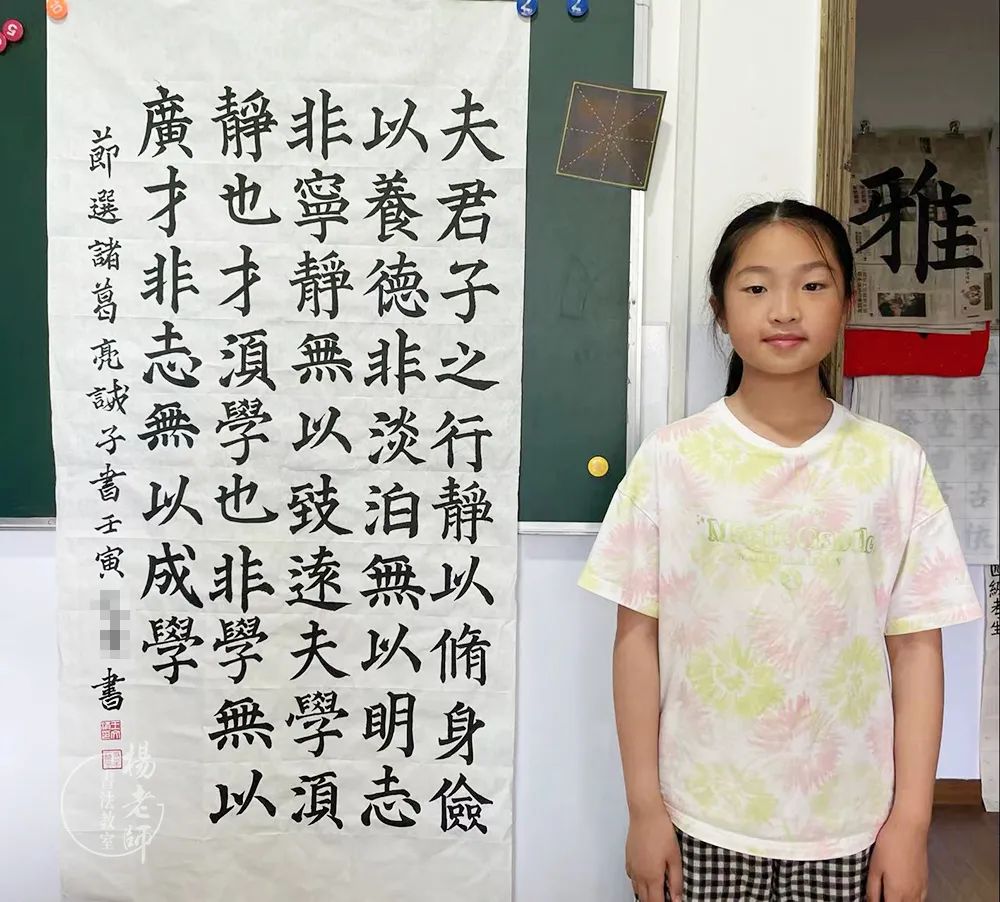 夫君子之行靜以脩身儉
以養德非淡泊無以明志
非寧靜無以致逺夫學湏
靜也才湏學也非學無以
廣才非志無以成學
莭選諸葛亮誡子書壬寅
書
楊老師
書法教室
雅
5
10
7
7